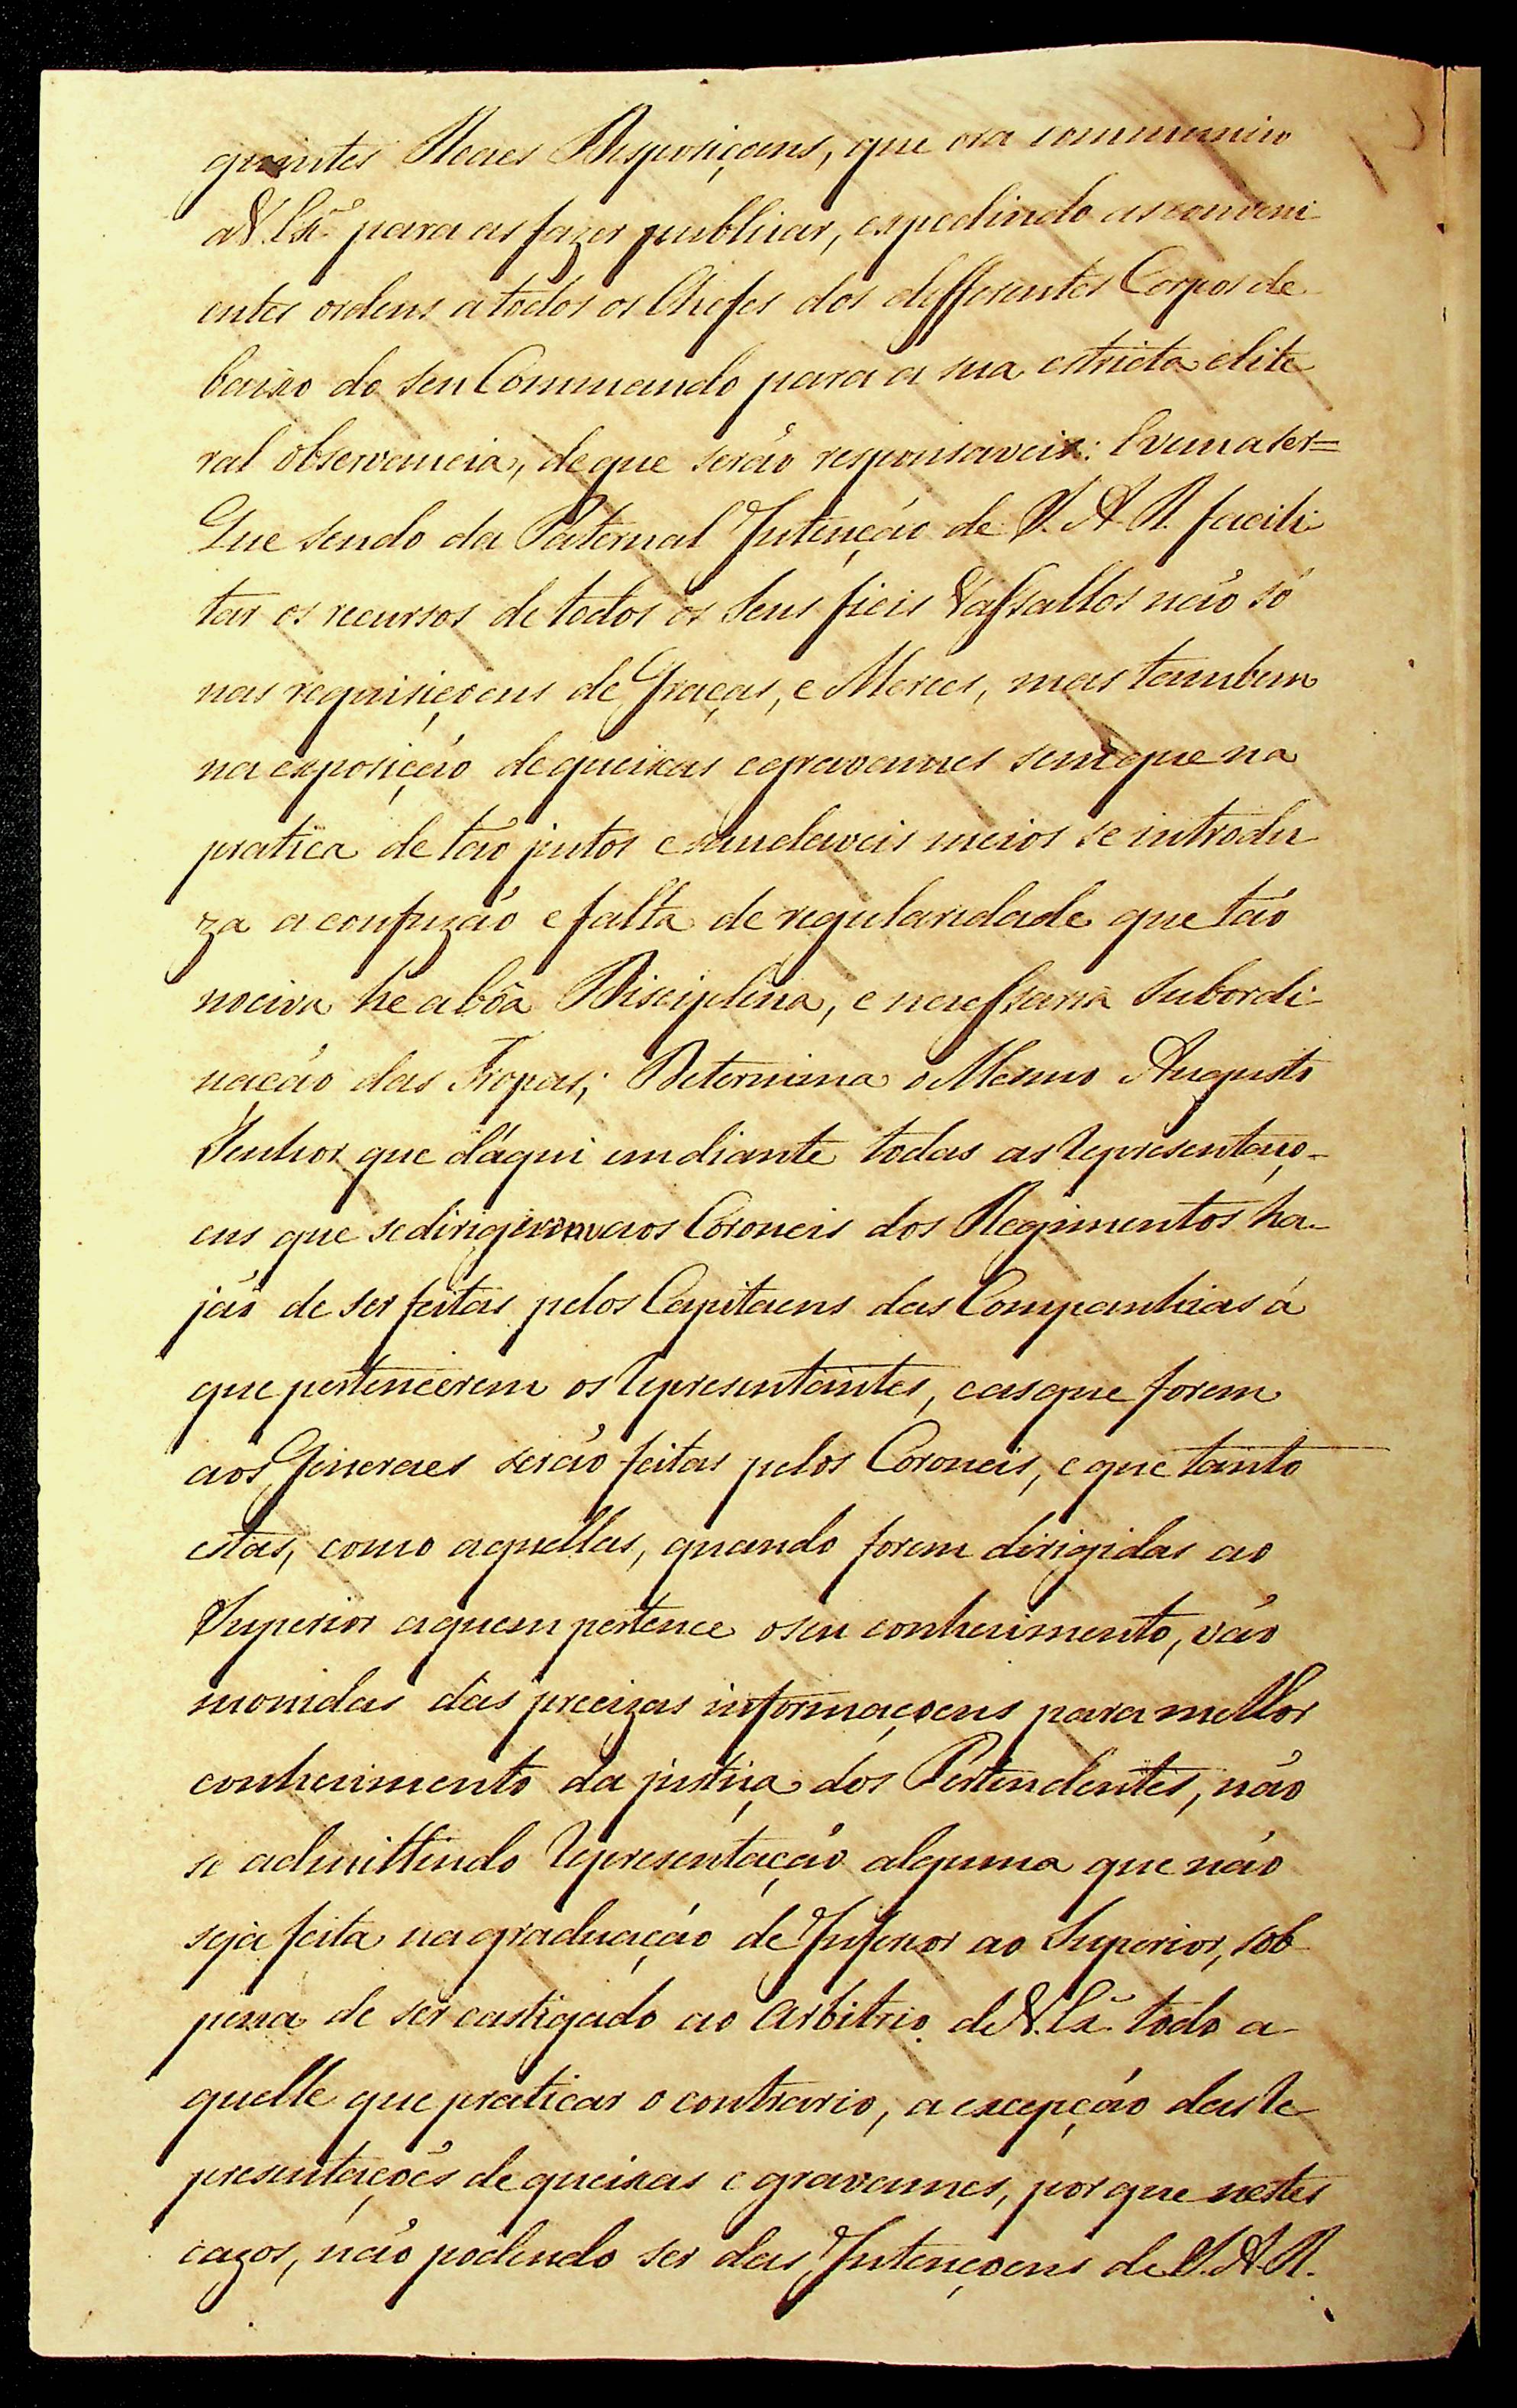 guintes Reaes Disposiçoens, que ora communico
a V. Ex.ª para as fazer publicar, expedindo as conveni
entes ordens a todos os Chefes dos defferentes Corpos de
baixo do seu Commando para a sua estricta e lite
ral observancia, de que serão responsaveis: E vem a ser=
Que sendo da Paternal Intenção de S. A. R. facili
tar os recursos de todos os Seus fieis Vassallos não só
nas requisiçoens de Graças, e Merces, mas tambem
na exposição de queixas e gravames sem que na
pratica de tão justos e saudaveis meios se introdu
za a confuzão e falta de regularidade que tão
nociva he a bôa Disciplina, e necessaria Subordi-
nação das Tropas; Determina o Mesmo Augusto
Senhor que d'áqui em diante todas as Representaço-
ens que se dirigirem aos Coroneis dos Regimentos ha-
jão de ser feitas pelos Capitaens das Companhias á
que pertencerem os Representantes, e as que forem
aos Generaes serão feitas pelos Coroneis, e que tanto
estas, como aquellas, quando forem dirigidas ao
Superior a quem pertence o seu conhecimento, vão
monidas das precizas informaçoens para melhor
conhecimento da justiça dos Pertendentes, não
se admittindo Representação alguma que não
seja feita na graduação de Inferior ao Superior, sob
pena de ser castigado ao Arbitrio de V. Ex.ª todo a
quelle que praticar o contrario, a excepção das Re
presentações de queixas e gravames, por que nestes
cazos, não podendo ser das Intençoens de S. A. R.